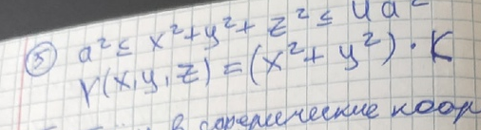 ⑤ a² ≤ x²+y²+z² ≤ 4a²
γ(x,y,z) = (x²+y²)·K
в сферические коор